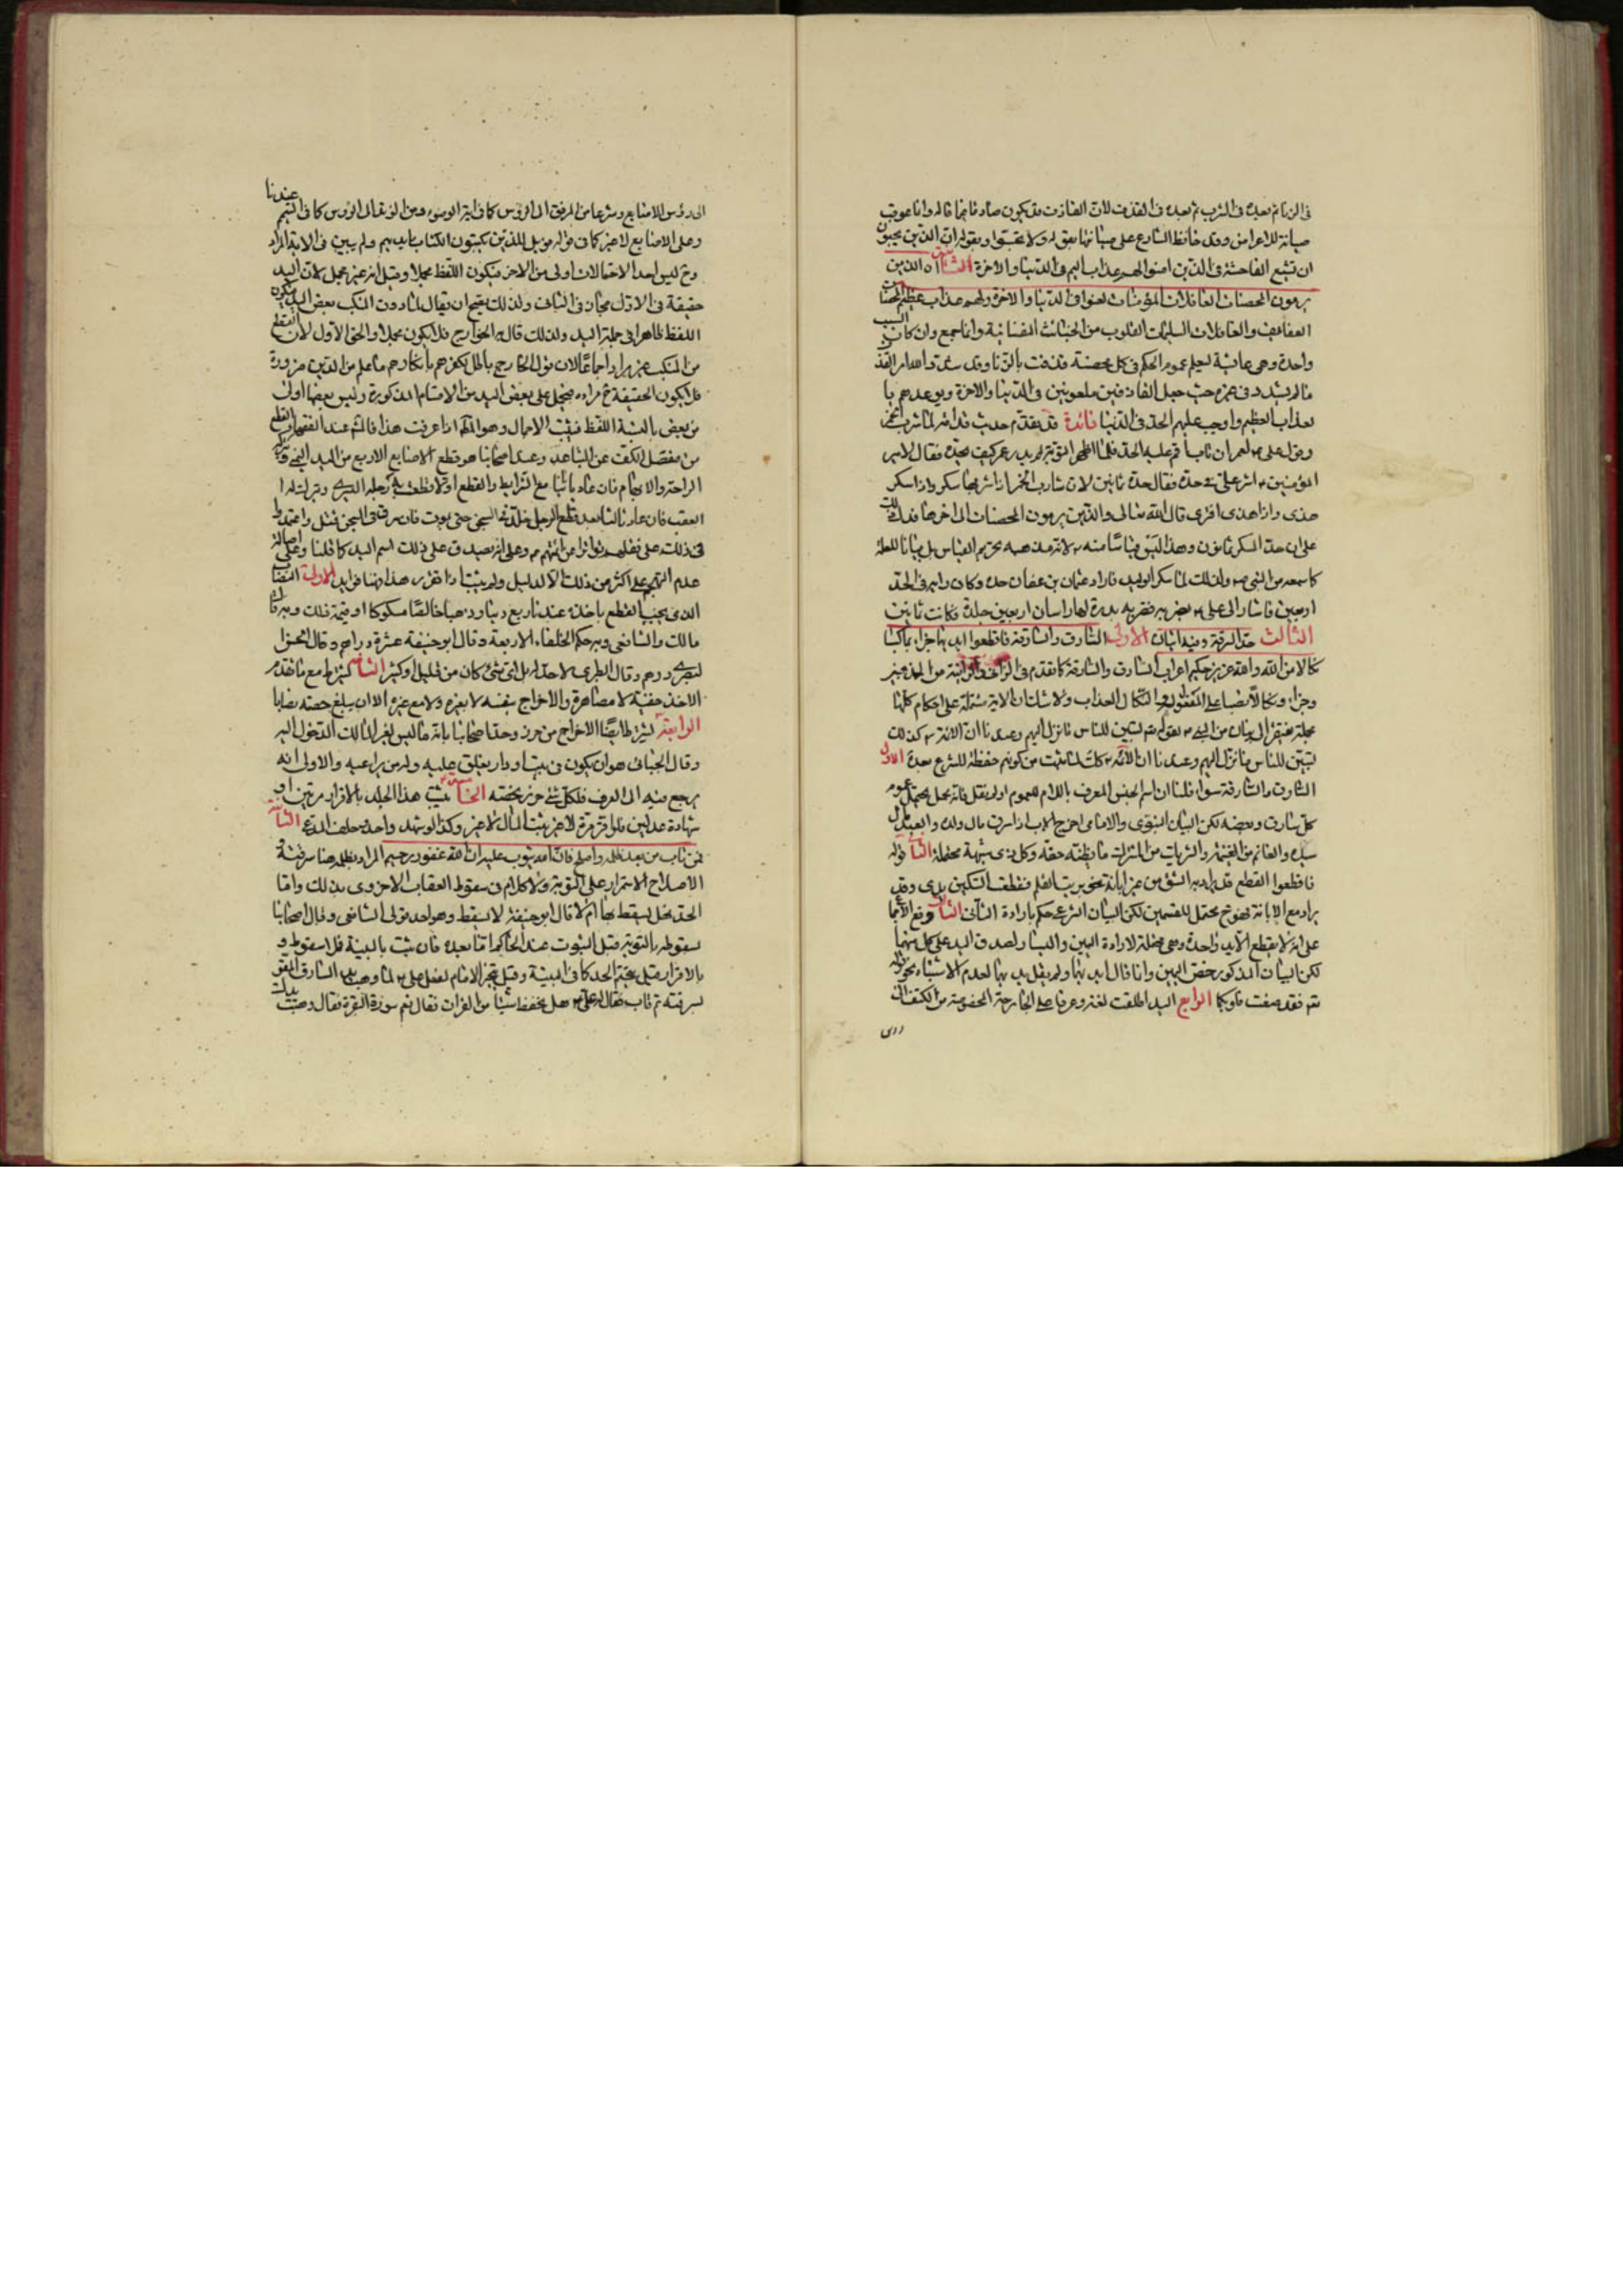 في الزنا ثم بعده في الشرب ثم بعده في القذف لان القاذف قد يكون صادقا فيما قاله وانما عوقب
صيانة للاعراض وقد حافظ الشارع على صيانتها بقوله ولا تجسسوا وبقوله ان الذين يحبون
ان تشيع الفاحشة في الذين امنوا لهم عذاب اليم في الدنيا والاخرة الثانية ان الذين
يرمون المحصنات الغافلات المؤمنات لعنوا في الدنيا والاخرة ولهم عذاب عظيم المحصنات
العفائف والغافلات السليمات القلوب من الخبائث النفسانية وانما جمع وان كان السبب
واحدة وهي عائشة ليعلم عموم الحكم في كل محصنة قذفت بالزنا وقد شدد الله امر القذف
ما لم يشدد في غيره حيث جعل القاذفين ملعونين في الدنيا والاخرة وتوعدهم با
لعذاب العظيم واوجب عليهم الحد في الدنيا فائدة قد تقدم حديث قدامة لما شرب الخمر
وقول علي لعمر ان تاب اقم عليه الحد فلما اظهر التوبة لم يدر عمر كيف يحده فقال لامير
المؤمنين اشر علي في حده فقال حده ثمانين لان شارب الخمر اذا شربها سكر واذا سكر
هذى واذا هذى افترى قال الله تعالى والذين يرمون المحصنات الى اخرها فدلت
على ان حد السكر ثمانون وهذا ليس قياسا منه لانه مذهبه تحريم القياس بل بيانا للعلة
كما سمعه من النبي ولذلك لما سكر الوليد فاراد عثمان بن عفان حده وكان رايه في الحد
اربعين فاشار الى علي بضربه فضربه بدرة لها راسان اربعين جلدة فكانت ثمانين
الثالث حد السرقة وفيه ايتان الاولى السارق والسارقة فاقطعوا ايديهما جزاء بما كسبا
نكالا من الله والله عزيز حكيم اعراب السارق والسارقة كما تقدم في الزاني والزانية من الوجهين
وجزاء ونكالا نصبا على المفعول له والنكال العذاب ولا شك ان الاية مشتملة على احكام كلها
مجملة تفتقر الى بيان من النبي بقوله لتبين للناس ما نزل اليهم وعندنا ان الائمة كذلك
لتبين للناس ما نزل اليهم وعندنا ان الائمة كذلك لما ثبت من كونهم حفظة للشرع بعده الاول
السارق والسارقة سواء قلنا ان اسم الجنس المعرف باللام للعموم او لم نقل فانه يحتمل عموم
كل سارق وبعضه لكن البيان النبوي والامامي اخرج الاب اذا سرق مال ولده والعبد مال
سيده والغانم من الغنيمة والشريك من المشترك ما يظنه حقه وكل ذي شبهة محتملة الثاني قوله
فاقطعوا القطع قد يراد به الشق من غير ابانة نحو بريت القلم فقطعت السكين يدي وقد
يراد مع الابانة فهو ح محتمل للقسمين لكن البيان الشرعي حكم بارادة الثاني الثالث وقع الاجماع
على انه لا يقطع الا يد واحدة وهي محتملة لارادة اليمين واليسار لصدق اليد على كل منهما
لكن البيان المذكور خص اليمين وانما قال ايديهما ولم يقل يديهما لعدم الاشتباه نحو قوله
تع فقد صغت قلوبكما الرابع اليد اطلقت لغة وعرفا على الجارحة المخصوصة من الكتف الى
عندنا
الى رؤس الاصابع وشرعا من المرفق الى الرؤس كما في اية الوضوء ومن الزند الى الرؤس كما في التيمم
وعلى الاصابع لا غير كما في قوله فويل للذين يكتبون الكتاب بايديهم ولم يبين في الاية المراد
وح ليس احد الاحتمالات اولى من الاخر فيكون اللفظ مجملا وقيل انه غير مجمل لان اليد
حقيقة في الاول مجاز في الثاني ولذلك يصح ان يقال لما دون المنكب بعض اليد فيكون
اللفظ ظاهرا في جملة اليد ولذلك قال به الخوارج فلا يكون مجملا والحق الاول لان القطع
من المنكب غير مراد اجماعا لان قول الخارجي باطل لكفرهم بانكارهم ما علم من الدين ضرورة
فلا يكون الحقيقة ح مراده فيحمل على بعض اليد من الاقسام المذكورة وليس بعضها اولى
من بعض بالنسبة اللفظ فيثبت الاجمال وهو المط اذا عرفت هذا فاعلم عند الفقهاء القطع
من مفصل الكف عن الساعد وعند اصحابنا هو قطع الاصابع الاربع من اليد اليمنى وترك
الراحة والابهام فان عاد ثانيا مع الشرايط والقطع اولا قطعت رجله اليسرى وترك له ا
لعقب فان عاد ثالثا بعد قطع الرجل خلد في السجن حتى يموت فان سرق في السجن قتل واعتمدوا
في ذلك على نقلهم تواترا عن ائمتهم وعلى انه يصدق على ذلك اسم اليد كما قلنا وعلى اصالة
عدم التهجم على اكثر من ذلك الا لدليل ولم يثبت اذا تقرر هذا فهنا فوايد الاولى النصاب
الذي يجب القطع باخذه عندنا ربع دينار ذهبا خالصا مسكوكا او قيمة ذلك وبه قال
مالك والشافعي وبه حكم الخلفاء الاربعة وقال ابو حنيفة عشرة دراهم وقال الحسن
البصري درهم وقال الطبري لا حد له بل اي شئ كان من قليل او كثير الثانية يشترط مع ما تقدم
الاخذ خفية لا مصاهرة والاخراج بنفسه لا بغيره ولا مع غيره الا ان يبلغ حصته نصابا
الرابعة يشترط ايضا الاخراج من حرز وحده اصحابنا بانه ما ليس لغير المالك الدخول اليه
وقال الجبائي هو ان يكون في بيت او دار يغلق عليه وله من يراعيه والاولى انه
يرجع فيه الى العرف فلكل شئ حرز يخصه الخامسة يثبت هذا الحد بالاقرار مرتين او
شهادة عدلين فلو اقر مرة لا غير ثبت المال لا غير وكذا لو شهد واحد وحلف المدعي الثانية
فمن تاب من بعد ظلمه واصلح فان الله يتوب عليه ان الله غفور رحيم المراد بظلمه هنا سرقته و
الاصلاح الاستمرار على التوبة ولا كلام في سقوط العقاب الاخروي بذلك واما
الحد فهل يسقط بها ام لا قال ابو حنيفة لا يسقط وهو احد قولي الشافعي وقال اصحابنا
سقوطه بالتوبة قبل الثبوت عند الحاكم اما بعده فان ثبت بالبينة فلا سقوط و
بالاقرار قيل يتحتم الحد كما في البينة وقيل يتخير الامام لفعل علي لما وهب يد السارق المقر
بسرقته ثم تاب فقال له علي هل تحفظ شيئا من القران فقال نعم سورة البقرة فقال وهبت يدك